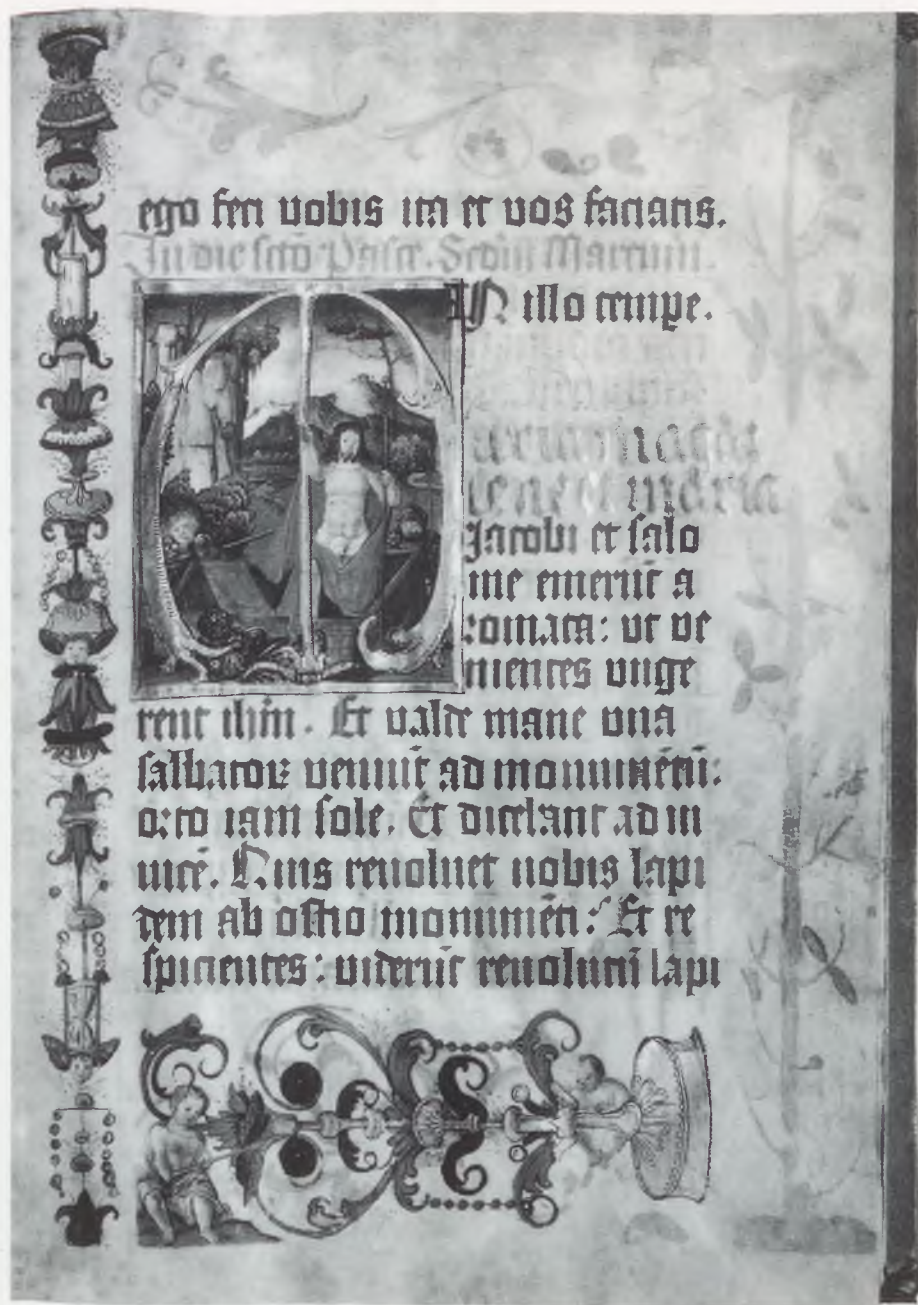 ego feci vobis ita et vos faciatis.
In die sctō Pasce. Scdm̄ Marcum.
IN illo tempe.
aria magda
lene et maria
Jacobi et salo
me emerūt a
romata: ut ve
nientes unge
rent ihm̄. Et valde mane una
sabbatorꝝ veniūt ad monumētū:
orto iam sole. Et dicebant ad in
vicē. Quis revolvet nobis lapi
dem ab ostio monumēti: Et re
spicientes: viderūt revolutū lapi